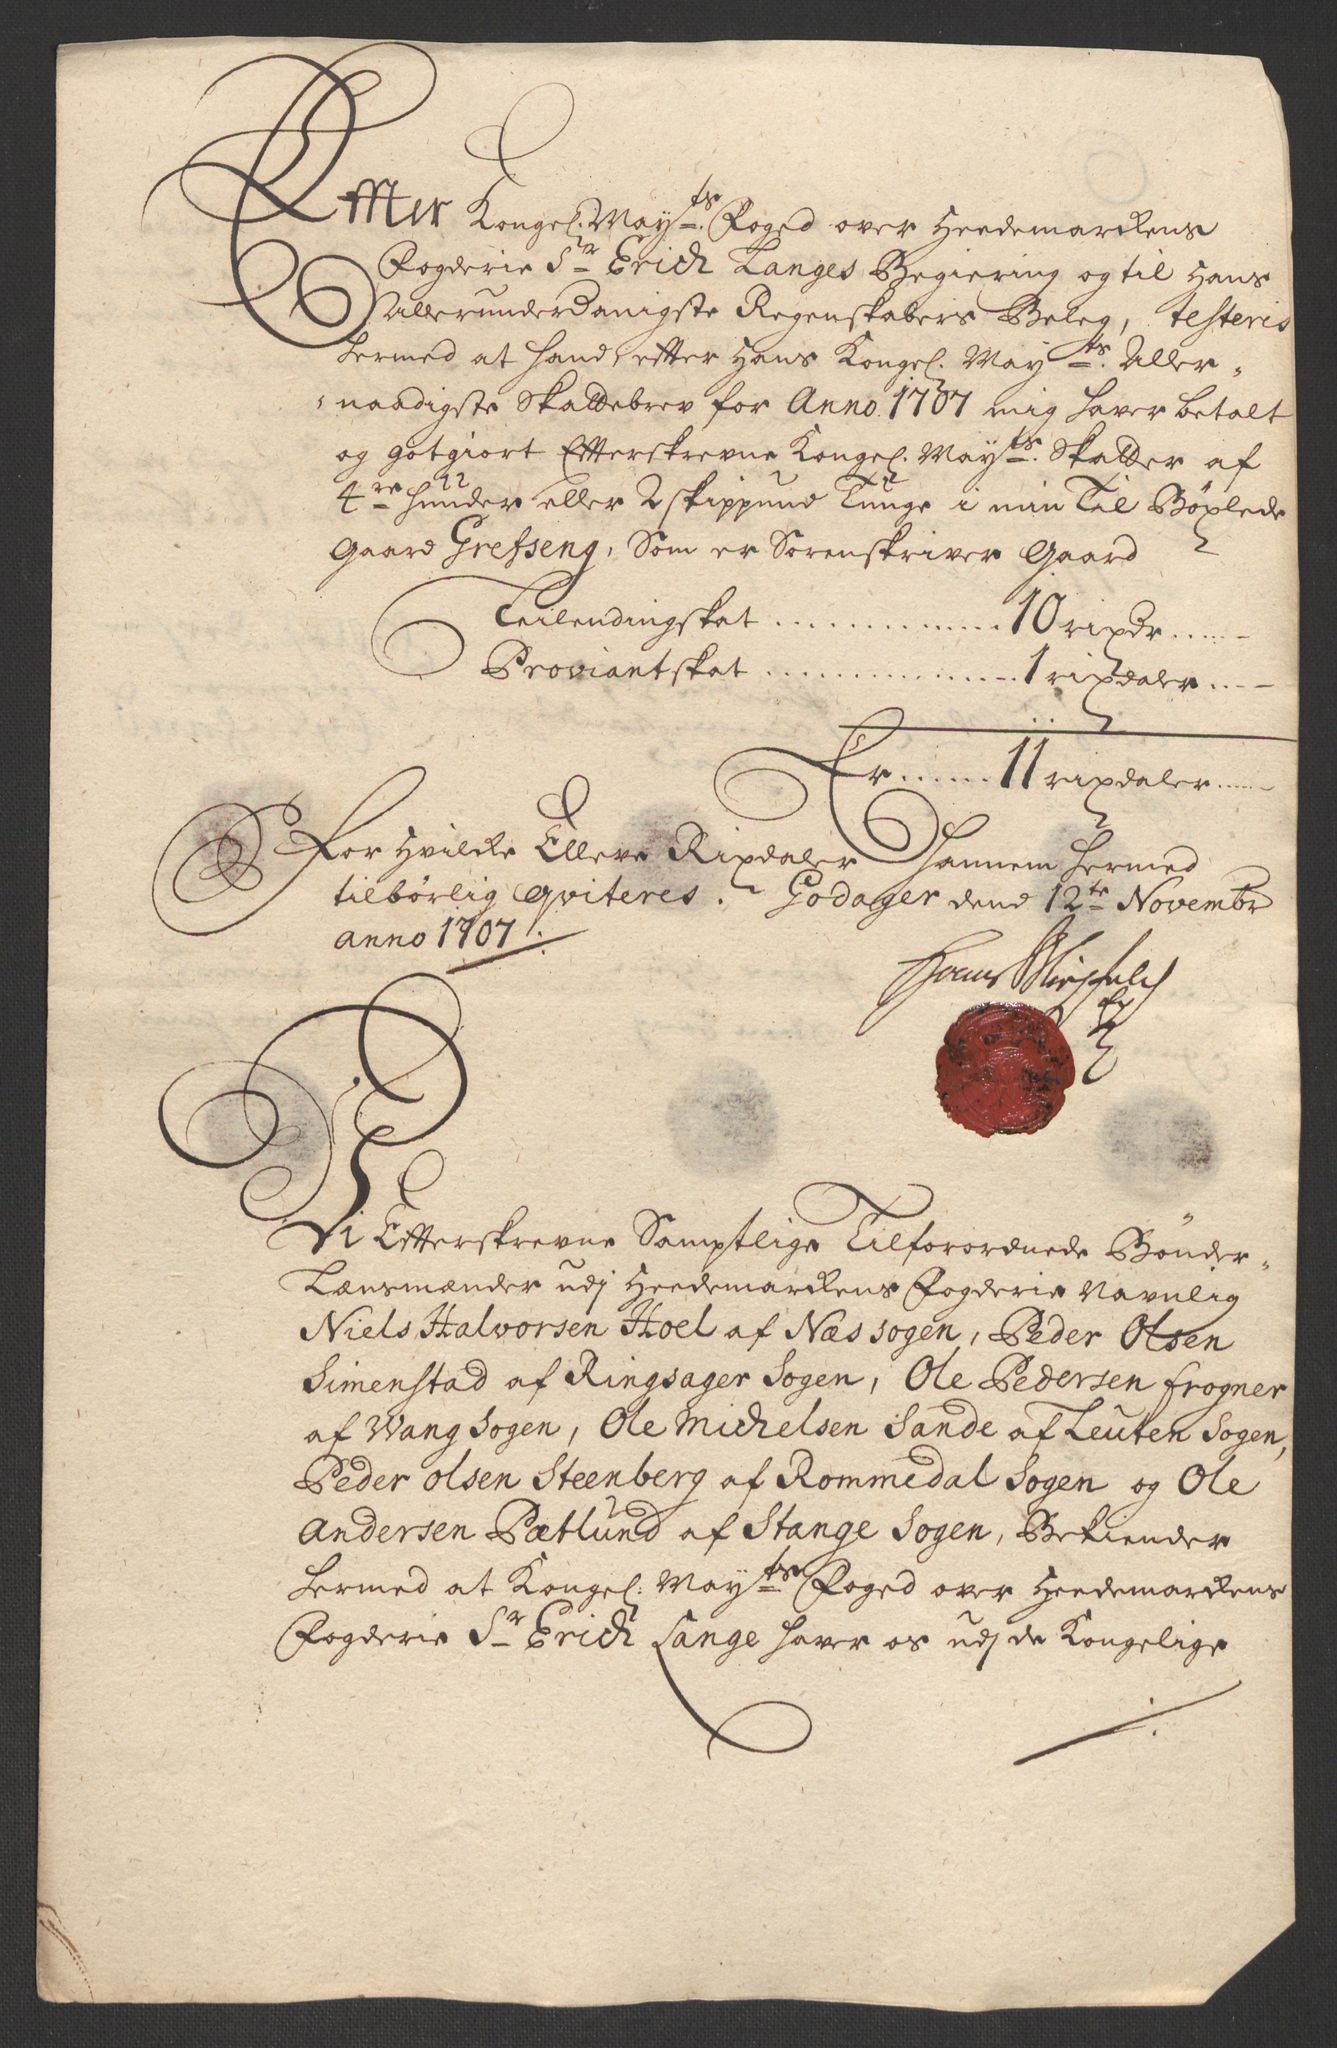 Effter Kongel. Mayts. Foged over Heedemarckens
Fogderie Sr Erich Langes Begiering og til Hans
Allerunderdanigste Regenskabers Beleg, testeris
hermed at hand, effter Hans Kongel. Mayts. Aller-
naadigste Skattebrev for Anno 1707 mig haver betalt
og gotgiort Effterskrevne Kongel. Mayts. Skatter af
4re hunder eller 2 skippund Tunge i min Til Böxlede
Gaard Grefseng, Som er Sorenskriver Gaard
Leilendingskat ............ 10 rixdr
Proviantskat ............ 1 rixdaler
Er ...... 11 rixdaler
For Hvilcke Elleve Rixdaler Hannem hermed
tilbørlig qviteres. Godager dend 12te Novembr
anno 1707
Hans
Vi Effterskrevne Samptlige Tilforordnede Bönder-
Lænsmænder udj Heedemarckens Fogderie Navnlig
Niels Halvorsen Hoel af Næs sogen, Peder Olsen
Simenstad af Ringsager Sogen, Ole Pedersen frogner
af Wang Sogen, Ole Michelsen Sande af Leuten Sogen,
Peder olsen Steenberg af Rommedal Sogen og Ole
Andersen Pætlund af Stange Sogen, Bekiender
hermed at Kongel: Mayts Foged over Heedemarckens
Fogderie Sr Erich Lange haver os udj de Kongelige